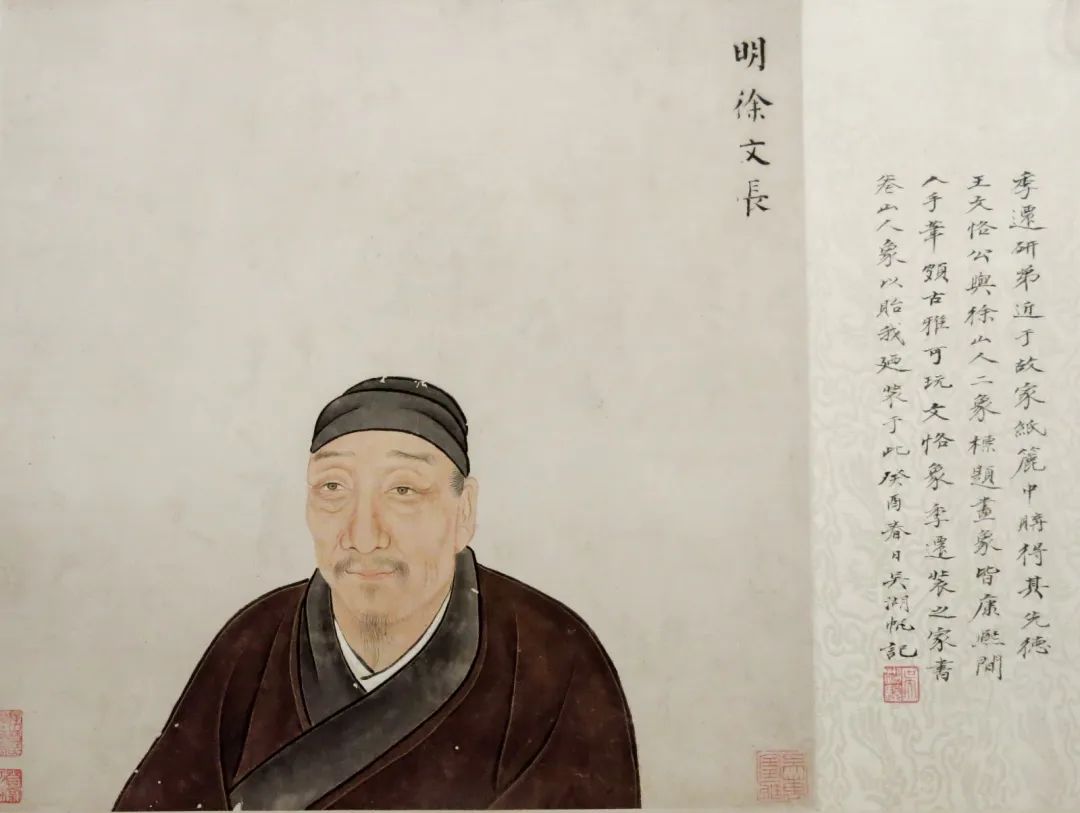 季遷研弟近于故家紙簏中得其先德
王文恪公與徐山人二象標題畫象皆康熙間
人手筆頗古雅可玩文恪象季遷裝之家書
山人象以貽我廼裝于此癸酉春日吳湖帆記
明徐文長